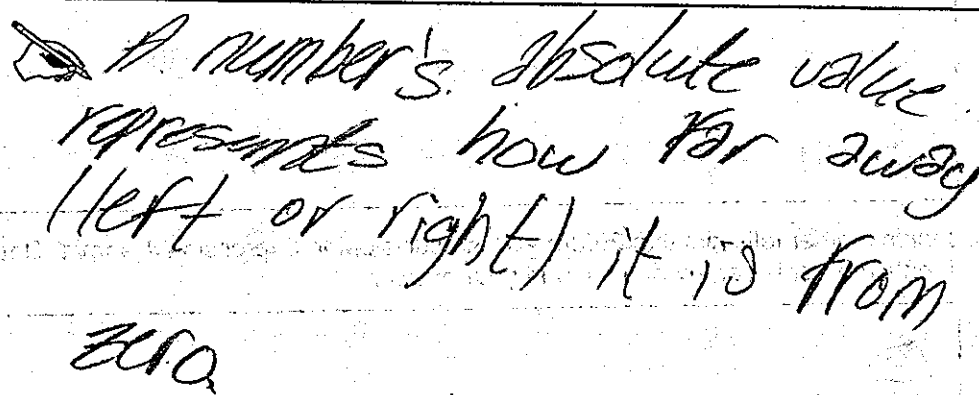 A number's absolute value
represents how far away
(left or right) it is from
zero.